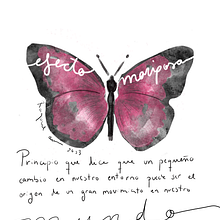 efecto mariposa
Principio que dice que un pequeño
cambio en nuestro entorno puede ser el
origen de un gran movimiento en nuestro